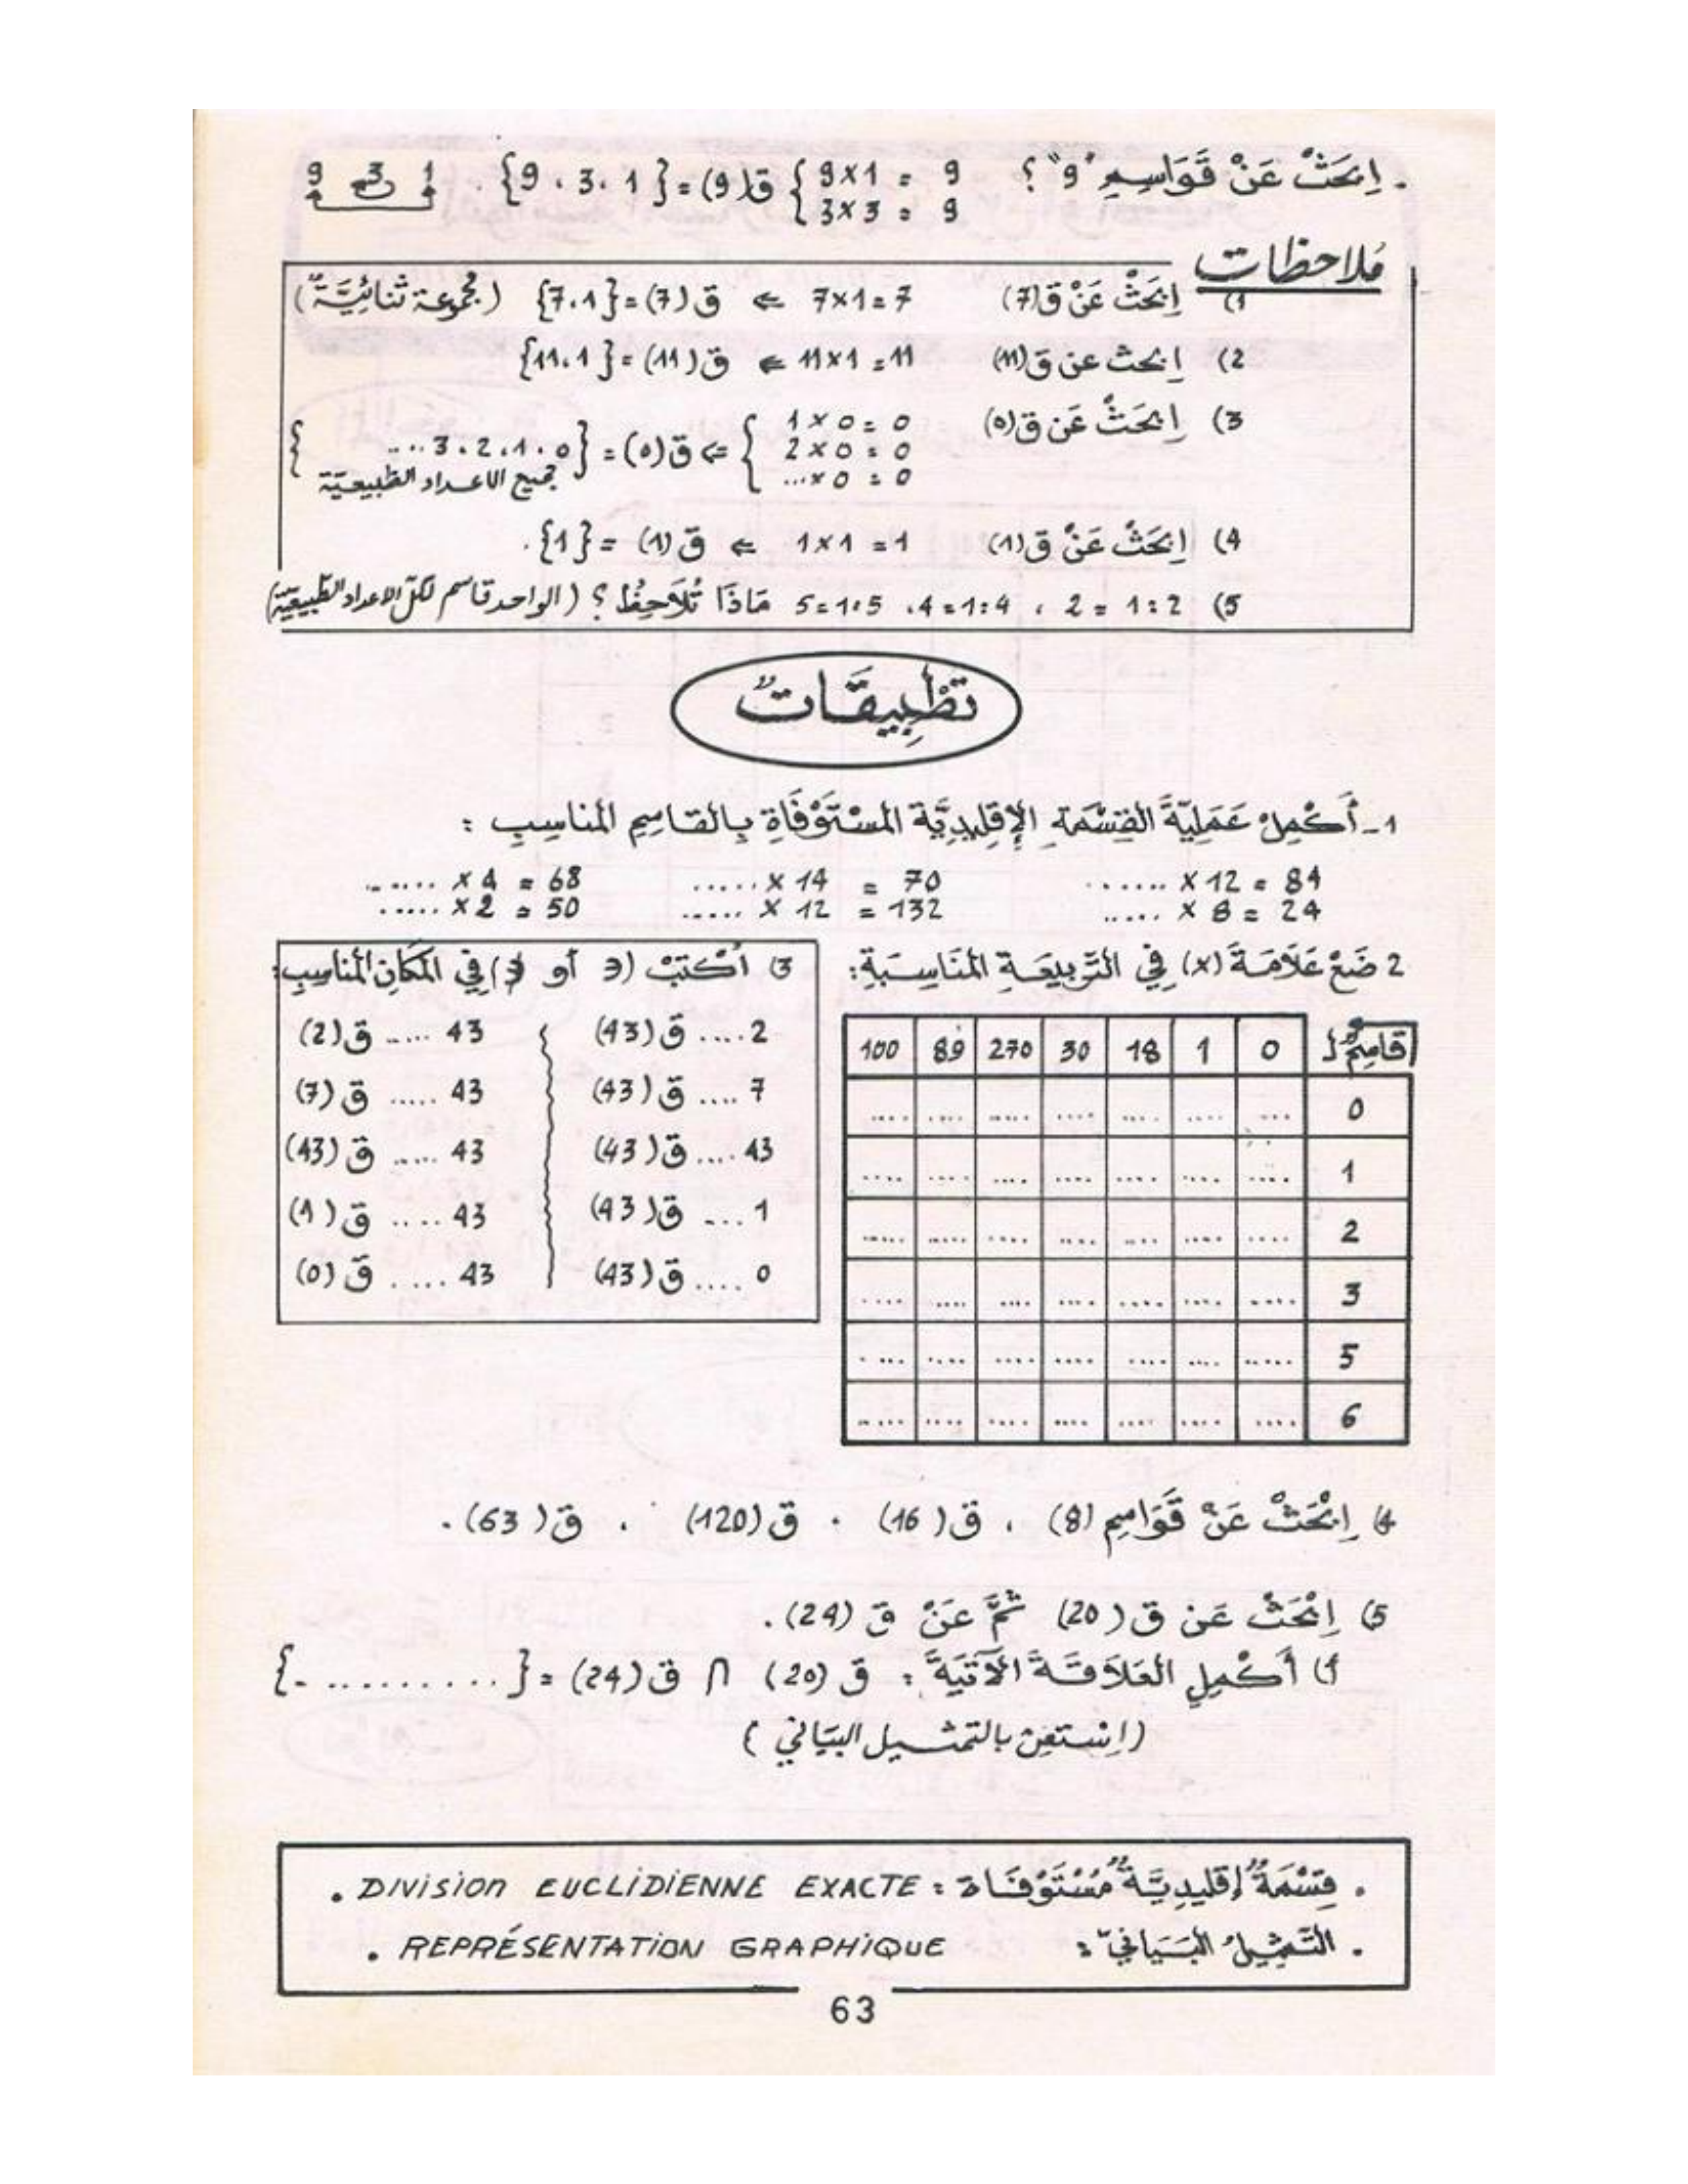 . اِبْحَثْ عَنْ قَوَاسِمِ "9" ؟ 9 = 1×9 ق(9) = {1 ، 3 ، 9} . 1 3 9
9 = 3×3
مُلاحظات
1) اِبْحَثْ عَنْ ق(7) 7=1×7 ⇐ ق(7)={7،1} (مجموعة ثنائِيَّةٌ)
2) اِبحث عن ق(11) 11=1×11 ⇐ ق(11)={11،1}
3) اِبْحَثْ عَن ق(0) 0=0×1
0=0×2 ⇐ ق(0)={0،1،2،3....}
0=0×... جميع الاعداد الطبيعيّة
4) اِبْحَثْ عَنْ ق(1) 1=1×1 ⇐ ق(1)={1}.
5) 2:1=2 ، 4:1=4، 5:1=5 مَاذَا تُلاَحِظُ ؟ (الواحد قاسم لكلّ الاعداد الطّبيعيّة)
تَطْبِيقَاتٌ
1- أَكْمِلْ عَمَلِيَّةَ القِسْمَةِ الإِقْلِيدِيَّة المُسْتَوْفَاةِ بِالقَاسِمِ المُنَاسِبِ :
....... X 12 = 84 ...... X 14 = 70 ....... X 4 = 68
..... X 8 = 24 ..... X 12 = 132 ..... X 2 = 50
2 ضَعْ عَلاَمَةَ (x) فِي التَّرْبِيعَةِ المُنَاسِبَةِ:
قاسِمٌ لـ 0 1 18 30 270 89 100
0 .... .... .... .... .... .... ....
1 .... .... .... .... .... .... ....
2 .... .... .... .... .... .... ....
3 .... .... .... .... .... .... ....
5 .... .... .... .... .... .... ....
6 .... .... .... .... .... .... ....
3) اُكْتُبْ (∈ أو ∉) فِي المَكَانِ المُنَاسِبِ:
2 .... ق(43) 43 ..... ق(2)
7 .... ق(43) 43 ..... ق(7)
43 .... ق(43) 43 ..... ق(43)
1 ... ق(43) 43 .... ق(1)
0 .... ق(43) 43 ..... ق(0)
4) اِبْحَثْ عَنْ قَوَاسِمِ (8) ، ق(16) ، ق(120) ، ق(63) .
5) اِبْحَثْ عَنْ ق(20) ثُمَّ عَنْ ق(24).
أ) أَكْمِلِ العَلاَقَةَ الآتِيَةَ : ق(20) ∩ ق(24) = {...........}
(اِسْتَعِنْ بالتمثيل البيَاني )
. قِسْمَةٌ إقليدِيَّةٌ مُسْتَوْفَاة : DIVISION EUCLIDIENNE EXACTE .
. التَّمْثِيلُ البَيَانيّ : REPRÉSENTATION GRAPHIQUE .
63